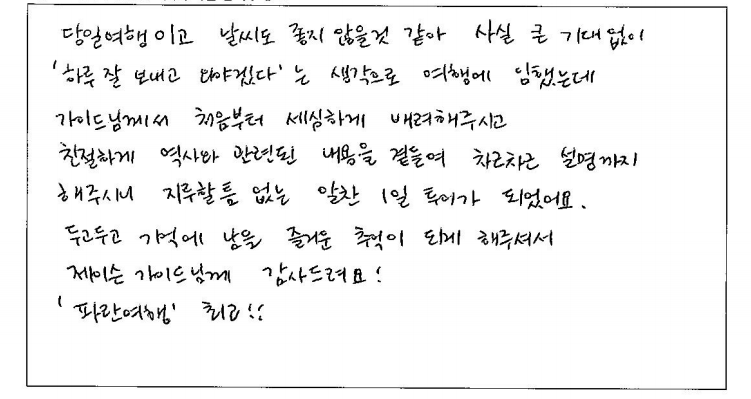 당일여행이고 날씨도 좋지 않을것 같아 사실 큰 기대없이
'하루 잘 보내고 와야겠다'는 생각으로 여행에 임했는데
가이드님께서 처음부터 세심하게 배려해주시고
친절하게 역사와 관련된 내용을 곁들여 차근차근 설명까지
해주시니 지루할틈 없는 알찬 1일 투어가 되었어요.
두고두고 기억에 남을 즐거운 추억이 되게 해주셔서
제이슨 가이드님께 감사드려요!
'파란여행' 최고!!